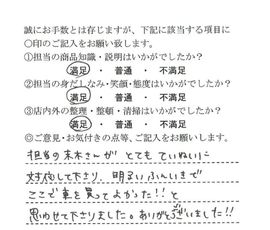 誠にお手数とは存じますが、下記に該当する項目に
○印のご記入をお願い致します。
①担当の商品知識・説明はいかがでしたか？
満足 ・ 普通 ・ 不満足
②担当の身だしなみ・笑顔・態度はいかがでしたか？
満足 ・ 普通 ・ 不満足
③店内外の整理・整頓・清掃はいかがでしたか？
満足 ・ 普通 ・ 不満足
◎ご意見・お気付きの点等、ご記入をお願いします。
担当の末木さんが とても ていねいに
対応して下さり、明るいふんいきで
ここで車を買ってよかった!!と
思わせて下さりました。ありがとうございました!!